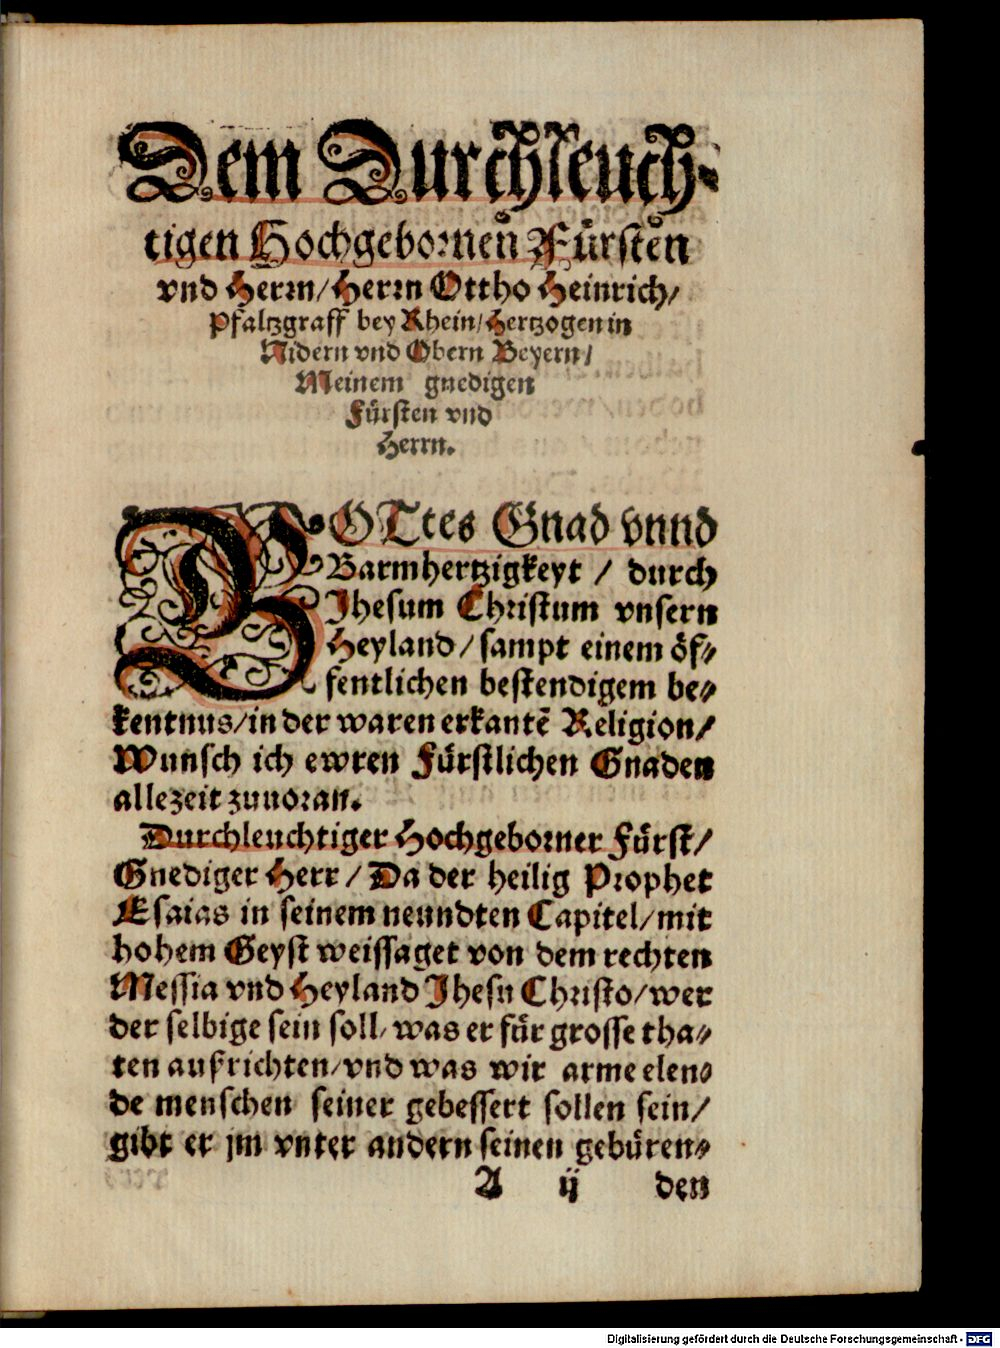 Dem Durchleuch-
tigen Hochgebornen Fürsten
vnd Herrn/Herrn Ottho Heinrich/
Pfaltzgraff bey Rhein/Hertzogen in
Nidern vnd Obern Beyern/
Meinem gnedigen
Fürsten vnd
Herrn.
GOTtes Gnad vnnd
Barmhertzigkeyt / durch
Jhesum Christum vnsern
Heyland/sampt einem öf-
fentlichen bestendigem be-
kentnus/in der waren erkantē Religion/
Wunsch ich ewren Fürstlichen Gnaden
allezeit zuuoran.
Durchleuchtiger Hochgeborner Fürst/
Gnediger Herr / Da der heilig Prophet
Esaias in seinem neundten Capitel/mit
hohem Geyst weissaget von dem rechten
Messia vnd Heyland Jhesu Christo/wer
der selbige sein soll/was er für grosse tha-
ten außrichten/vnd was wir arme elen-
de menschen seiner gebessert sollen sein/
gibt er jm vnter andern seinen gebüren-
A ij den
Digitalisierung gefördert durch die Deutsche Forschungsgemeinschaft - DFG